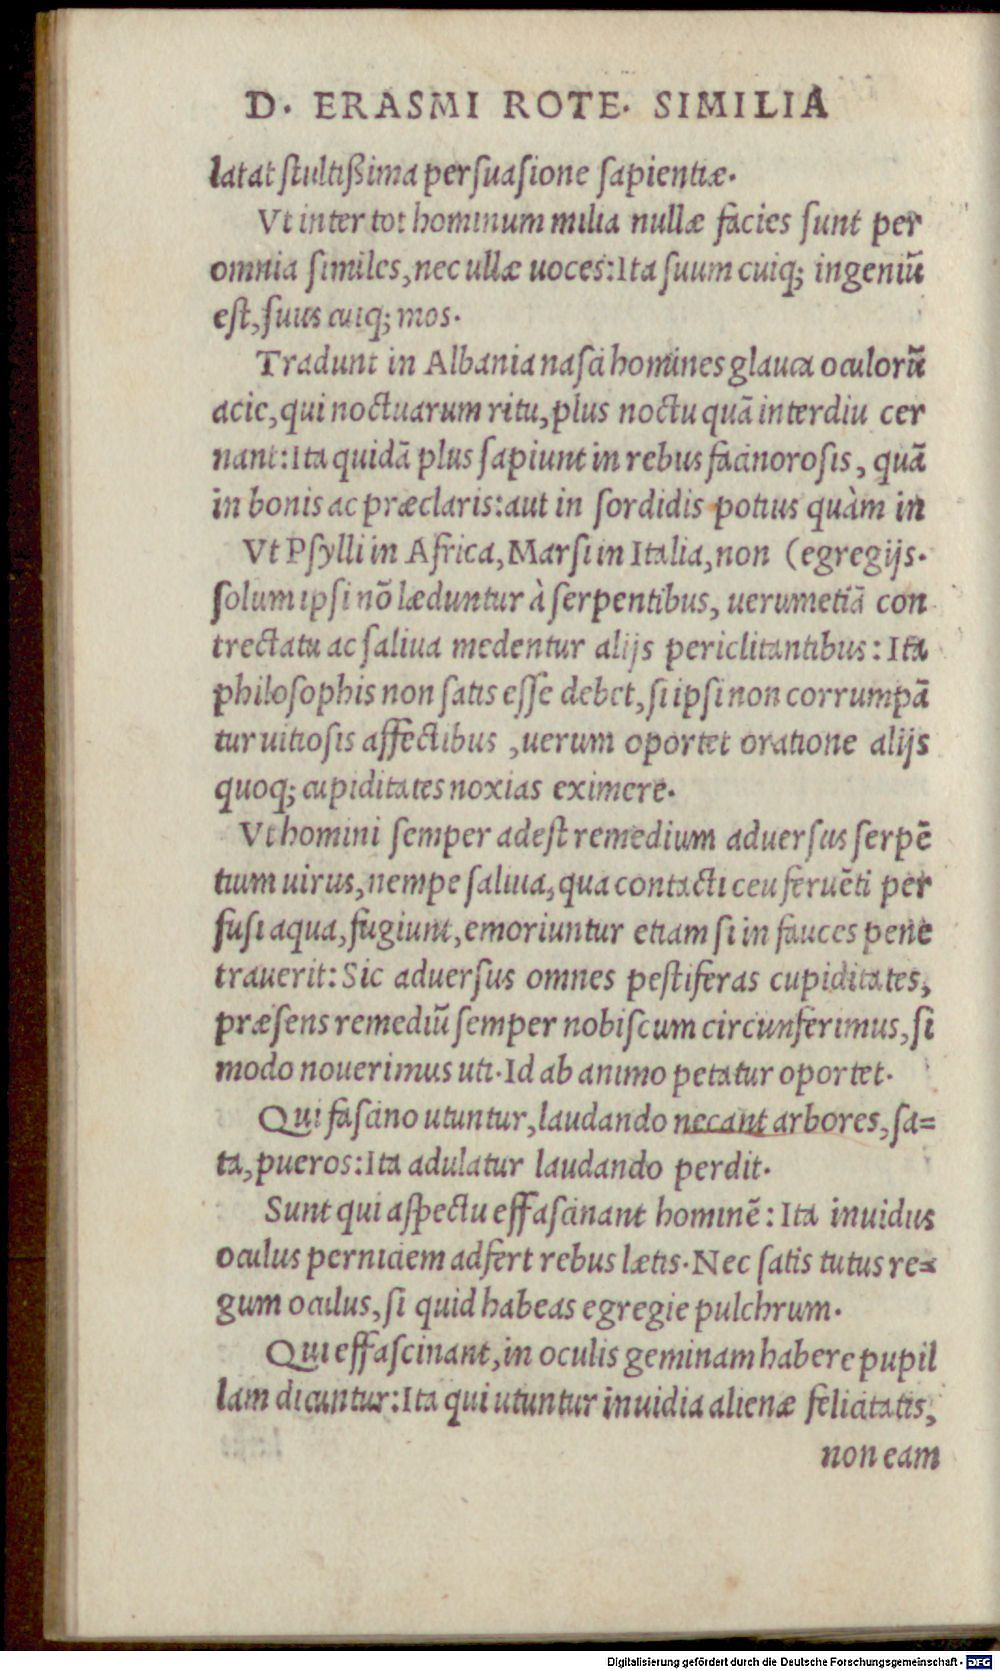 D. ERASMI ROTE. SIMILIA
latat ſtultißima perſuaſione ſapientiæ.
Vt inter tot hominum milia nullæ facies ſunt per
omnia ſimiles, nec ullæ uoces: Ita ſuum cuiq; ingeniũ
eſt, ſuus cuiq; mos.
Tradunt in Albania naſci homines glauca oculorũ
acie, qui noctuarum ritu, plus noctu quã interdiu cer
nant: Ita quidã plus ſapiunt in rebus facinoroſis, quã
in bonis ac præclaris: aut in ſordidis potius quàm in
Vt Pſylli in Africa, Marſi in Italia, non (egregijs.
ſolum ipſi nõ læduntur à ſerpentibus, uerumetiã con
trectatu ac ſaliua medentur alijs periclitantibus: Ita
philoſophis non ſatis eſſe debet, ſi ipſi non corrumpã
tur uitioſis affectibus, uerum oportet oratione alijs
quoq; cupiditates noxias eximere.
Vt homini ſemper adeſt remedium aduerſus ſerpẽ
tium uirus, nempe ſaliua, qua contacti ceu feruẽti per
fuſi aqua, fugiunt, emoriuntur etiam ſi in fauces pene
trauerit: Sic aduerſus omnes peſtiferas cupiditates,
præſens remediũ ſemper nobiſcum circunferimus, ſi
modo nouerimus uti. Id ab animo petatur oportet.
Qui faſcino utuntur, laudando necant arbores, ſa=
ta, pueros: Ita adulatur laudando perdit.
Sunt qui aſpectu effaſcinant hominẽ: Ita inuidus
oculus perniciem adfert rebus lætis. Nec ſatis tutus re=
gum oculus, ſi quid habeas egregie pulchrum.
Qui effaſcinant, in oculis geminam habere pupil
lam dicuntur: Ita qui utuntur inuidia alienæ felicitatis,
non eam
Digitalisierung gefördert durch die Deutsche Forschungsgemeinschaft - DFG